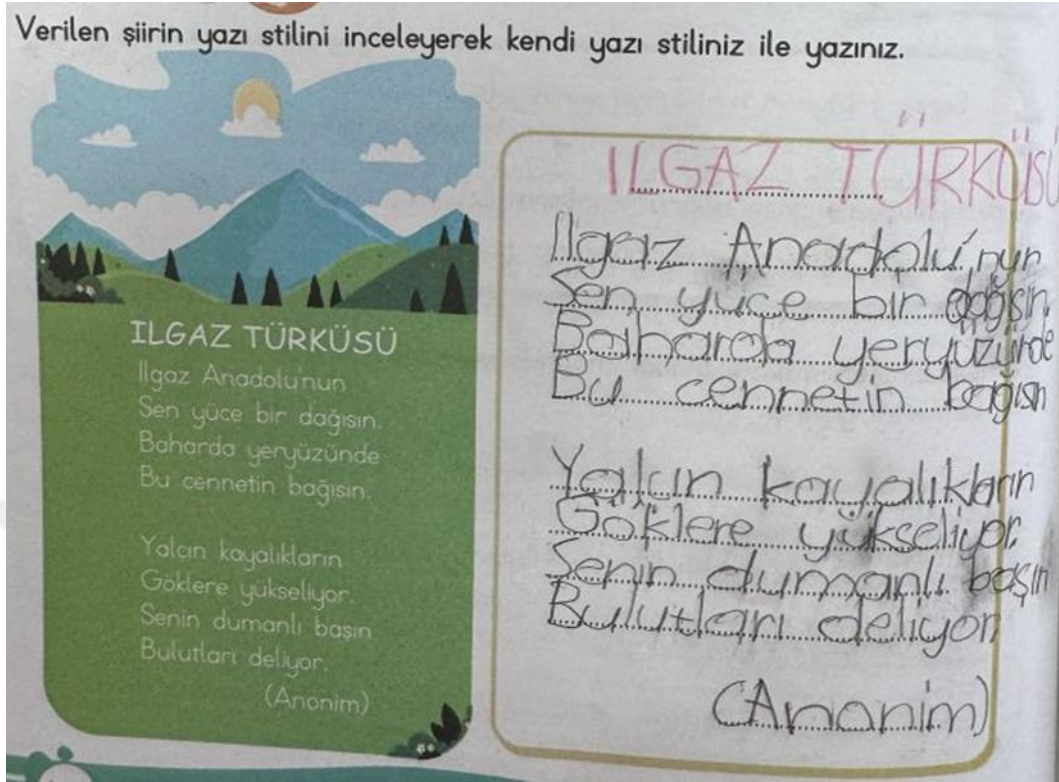 Verilen şiirin yazı stilini inceleyerek kendi yazı stiliniz ile yazınız.
ILGAZ TÜRKÜSÜ
Ilgaz Anadolu'nun
Sen yüce bir dağısın.
Baharda yeryüzünde
Bu cennetin bağısın.
Yalçın kayalıkların
Göklere yükseliyor.
Senin dumanlı başın
Bulutları deliyor.
(Anonim)
ILGAZ TÜRKÜSÜ
Ilgaz Anadolu'nun
Sen yüce bir dağısın,
Baharda yeryüzünde
Bu cennetin bağısın
Yalçın kayalıkların
Göklere yükseliyor.
Senin dumanlı başın
Bulutları deliyor
(Anonim)